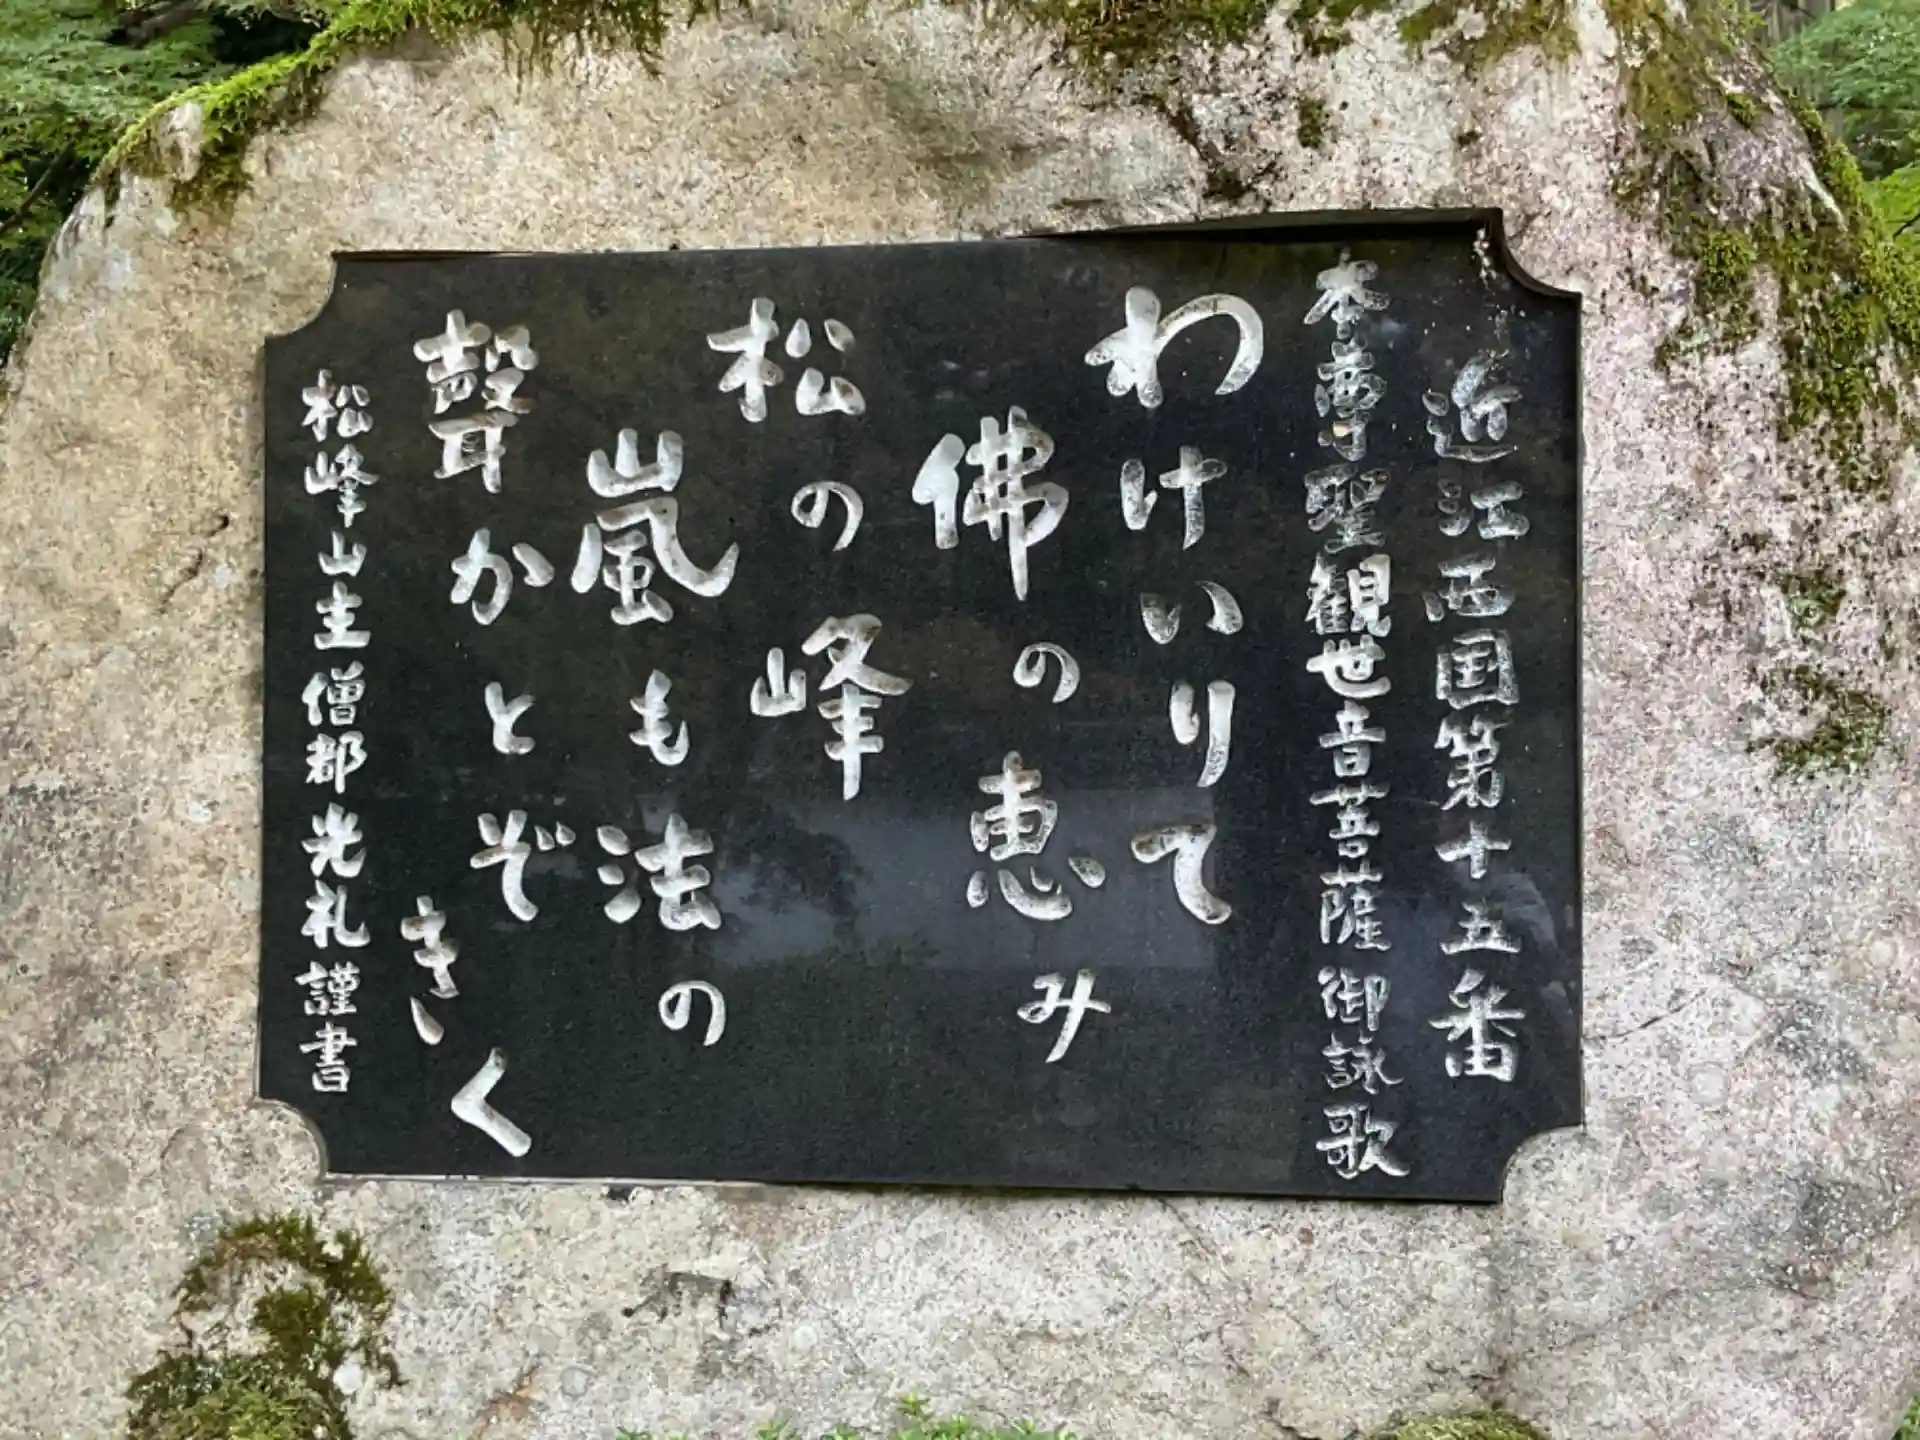 近江西国第十五番
本尊聖観世音菩薩御詠歌
わけいりて
佛の恵み
松の峰
嵐も法の
聲かとぞ
きく
松峰山主僧都光礼謹書